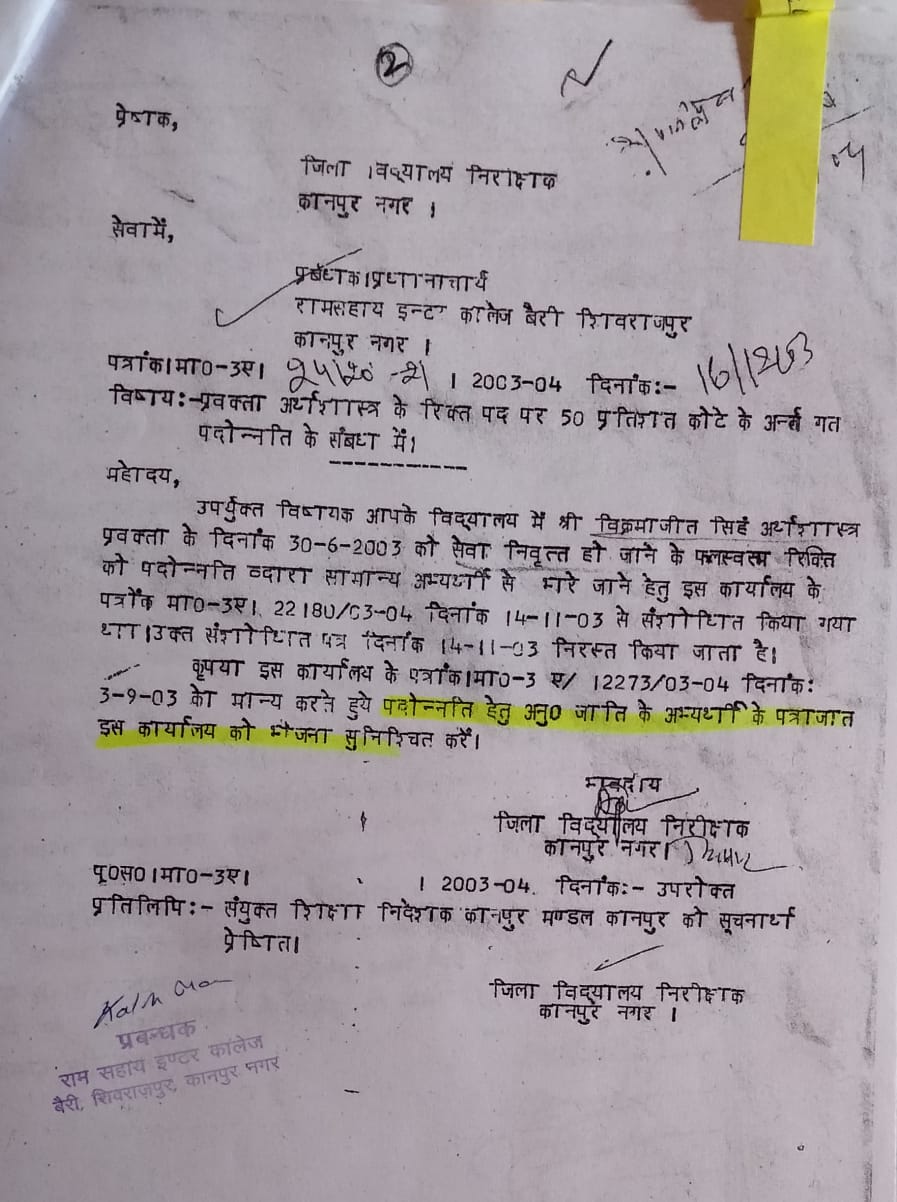 2
प्रेषक,
जिला विद्यालय निरीक्षक
कानपुर नगर ।
सेवामें,
प्रबंधक/प्रधानाचार्य
रामसहाय इन्टर कालेज बैरी शिवराजपुर
कानपुर नगर ।
पत्रांक/मा0-3ए/ । 2003-04 दिनांक:-
विषय:-प्रवक्ता अर्थशास्त्र के रिक्त पद पर 50 प्रतिशत कोटे के अर्न्त गत
पदोन्नति के संबध में।
-----------
महोदय,
उपर्युक्त विषयक आपके विद्यालय में श्री विक्रमाजीत सिहं अर्थशास्त्र
प्रवक्ता के दिनांक 30-6-2003 को सेवा निवृत्त हो जाने के फलस्वरूप रिक्ति
को पदोन्नति व्दारा सामान्य अभ्यर्थी से भरे जाने हेतु इस कार्यालय के
पत्राँक मा0-3ए/ 22180/03-04 दिनांक 14-11-03 से संशोधित किया गया
था।उक्त संशोधित पत्र दिनांक 14-11-03 निरस्त किया जाता है।
कृपया इस कार्यालय के पत्रांक/मा0-3 ए/ 12273/03-04 दिनांक:
3-9-03 को मान्य करते हुये पदोन्नति हेतु अनु0 जाति के अभ्यर्थी के पत्राजात
इस कार्यालय को भेजना सुनिश्चित करें।
भवदीय
जिला विद्यालय निरीक्षक
कानपुर नगर।
पृ0स0/मा0-3ए/ । 2003-04. दिनांक:- उपरोक्त
प्रतिलिपि:- संयुक्त शिक्षा निदेशक कानपुर मण्डल कानपुर को सूचनार्थ
प्रेषित।
जिला विद्यालय निरीक्षक
कानपुर नगर ।
प्रबन्धक
राम सहाय इण्टर कॉलेज
बैरी, शिवराजपुर, कानपुर नगर